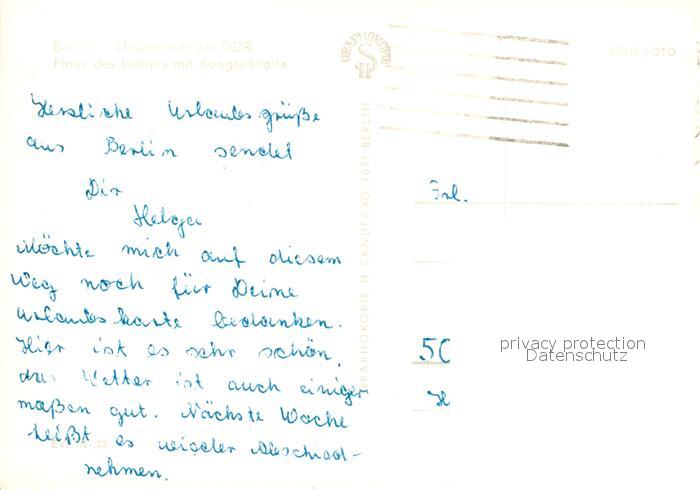 Berlin Hauptstadt der DDR
Haus des Lehrers mit Kongreßhalle
GRAPHOKOPIE
ECHT FOTO
Herzliche Urlaubsgrüße
aus Berlin sendet
Dir
Helga
Möchte mich auf diesem
Weg noch für Deine
Urlaubskarte bedanken.
Hier ist es sehr schön,
das Wetter ist auch einiger
maßen gut. Nächste Woche
heißt es wieder Abschied-
nehmen.
GRAPHOKOPIE H. SANDER KG, 1071 BERLIN
Frl.
50
H
privacy protection
Datenschutz